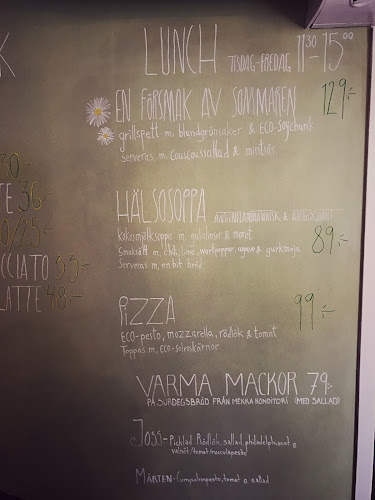 K
LUNCH TISDAG-FREDAG 11 30 - 15 00
EN FÖRSMAK AV SOMMAREN 129:-
grillspett m. blandgrönsaker & ECO-Soychunk
serveras m. Couscoussallad & mintsås
30:-
TE 36:-
0/25:-
CCIATO 35:-
LATTE 48:-
HÄLSOSOPPA ANTIINFLAMMATORISK &
Kokosmjölksoppa m. & morot 89:-
Smaksätt m. chili, lime, svartpeppar, agave & gurkmeja
Serveras m. en bit bröd
PIZZA 99:-
ECO-pesto, mozzarella, rödlök & tomat
Toppas m. ECO-solroskärnor
VARMA MACKOR 79:-
PÅ SURDEGSBRÖD FRÅN MEKKA KONDITORI (MED SALLAD)
JOSS - Picklad Rödlök, sallad, philadelphiaost &
valnöt/tomat/ruccolapesto
MÅRTEN - tomat & sallad